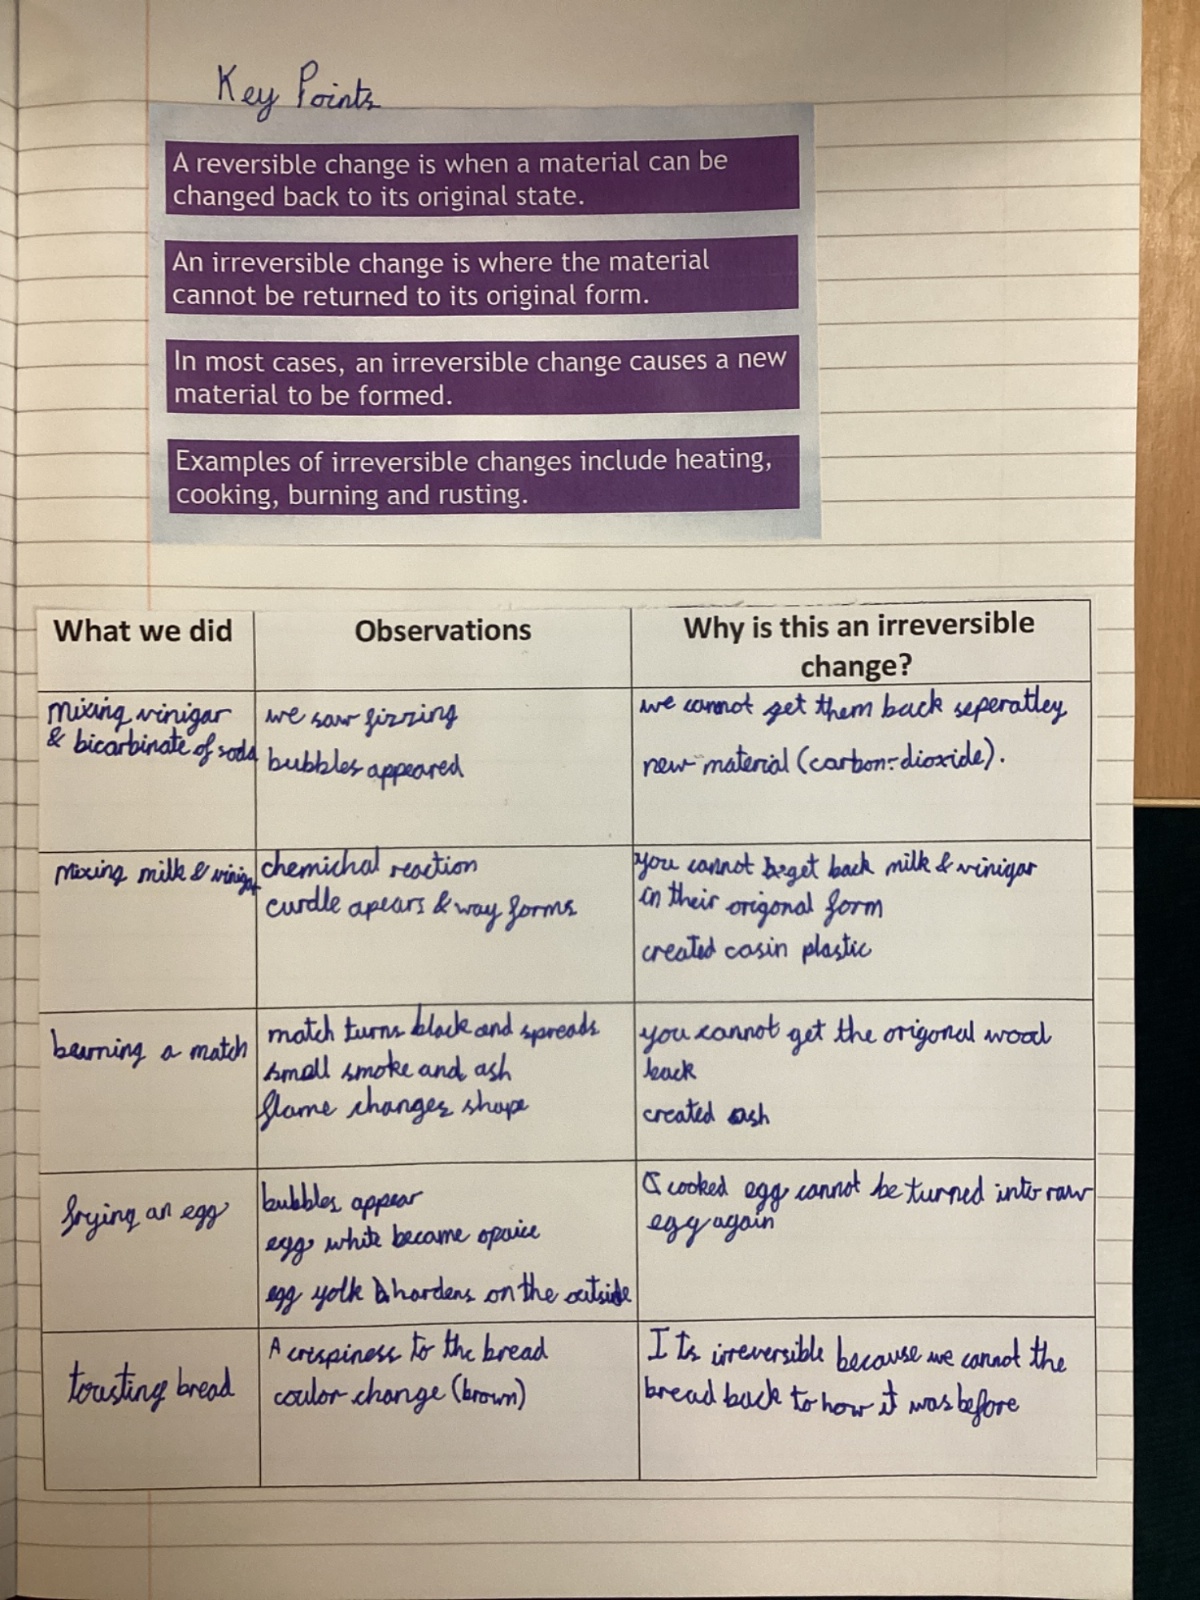 Key Points
A reversible change is when a material can be
changed back to its original state.
An irreversible change is where the material
cannot be returned to its original form.
In most cases, an irreversible change causes a new
material to be formed.
Examples of irreversible changes include heating,
cooking, burning and rusting.
What we did
Observations
Why is this an irreversible
change?
mixing vinigar
& bicarbinate of soda
we saw fizzing
bubbles appeared
we cannot get them back seperatley
new material (carbon-dioxide).
mixing milk & vinigar
chemichal reaction
curdle apears & way forms
you cannot get back milk & vinigar
in their origonal form
created casin plastic
burning a match
match turns black and spreads
small smoke and ash
flame changes shape
you cannot get the origonal wood
back
created ash
frying an egg
bubbles appear
egg white became opaice
egg yolk hardens on the outside
cooked egg cannot be turned into raw
egg again
tousting bread
A crispiness to the bread
coulor change (brown)
Its irreversible because we cannot the
bread back to how it was before